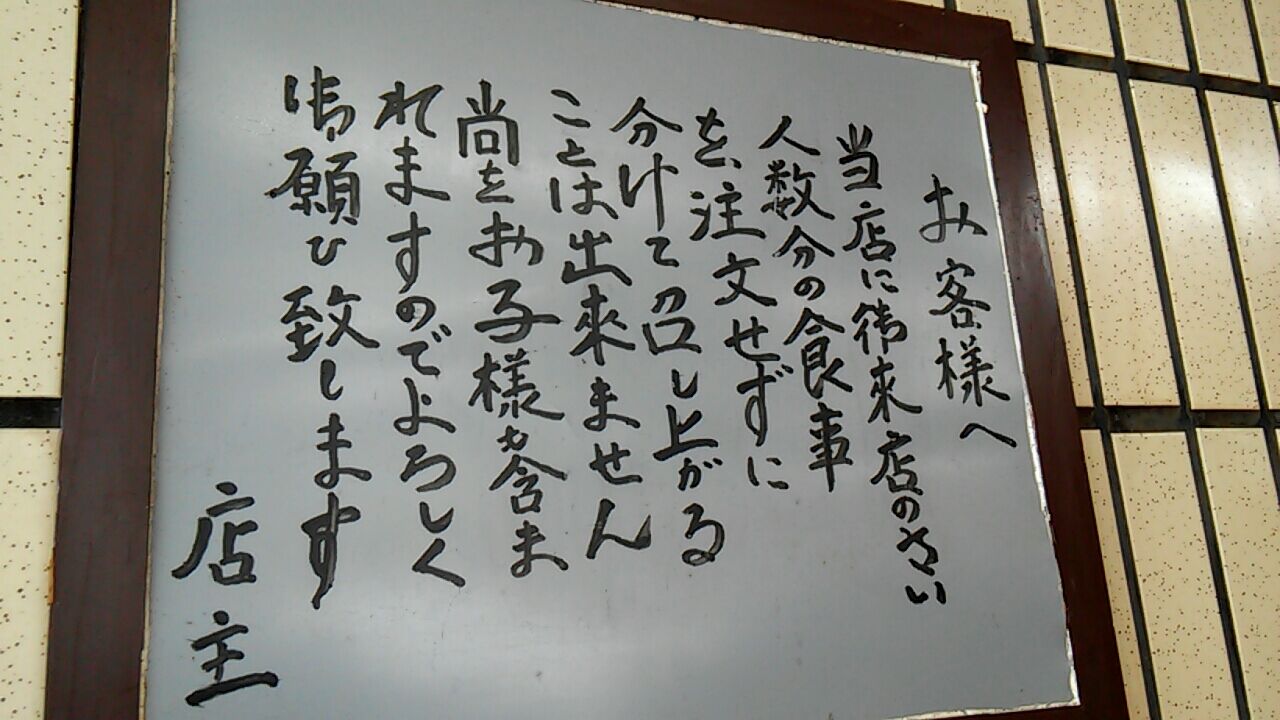 お客様へ
当店に御来店のさい
人数分の食事
を、注文せずに
分けて召し上がる
ことは出来ません
尚をお子様も含ま
れますのでよろしく
御願ひ致します
店主